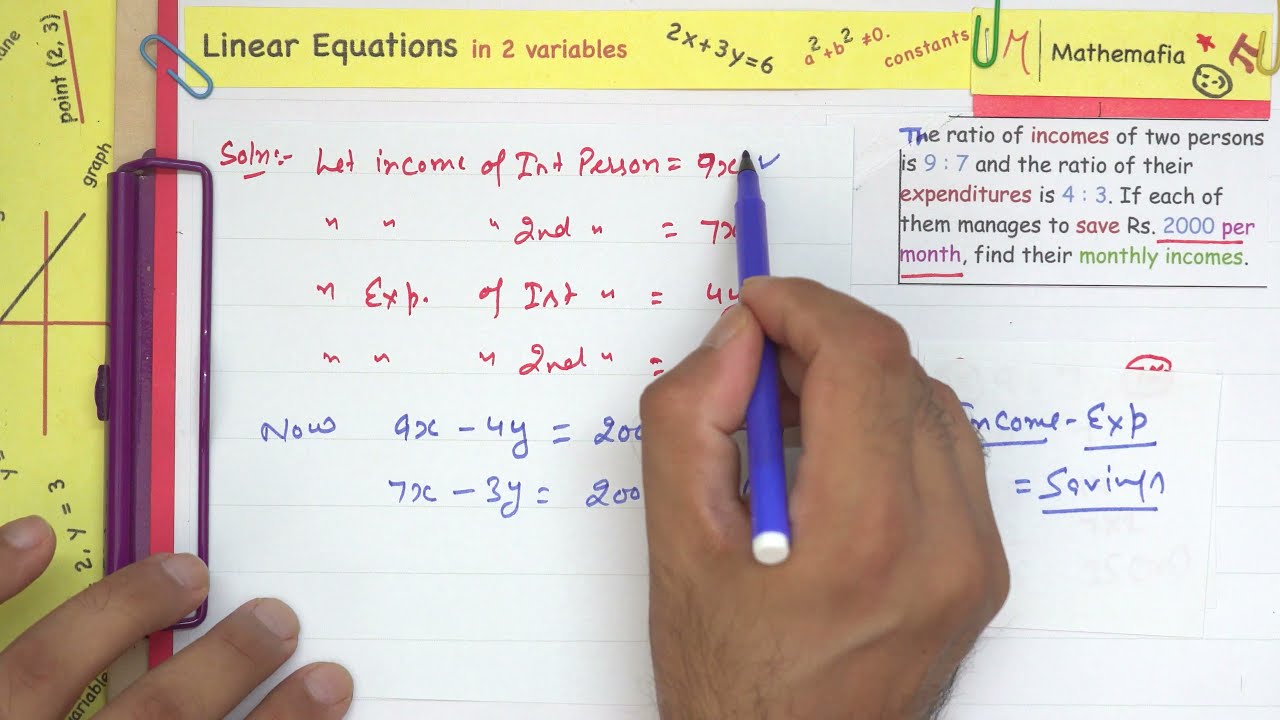 Linear Equations in 2 variables
2x+3y=6
a²+b² ≠0.
constants
M Mathemafia π
point (2, 3)
graph
2, y = 3
variable
The ratio of incomes of two persons
is 9 : 7 and the ratio of their
expenditures is 4 : 3. If each of
them manages to save Rs. 2000 per
month, find their monthly incomes.
Soln:- Let income of Ist Person = 9x ✓
" " " 2nd " = 7x
" Exp. of Ist " = 4y
" " " 2nd " =
Now 9x - 4y = 200
7x - 3y = 200
Income - Exp
= Savings